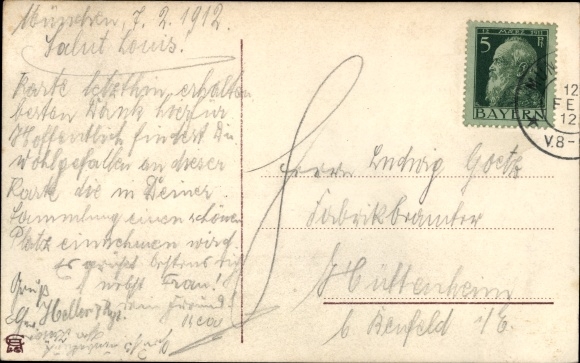 München, 7.2.1912.
Salut Louis.
Karte letzthin erhalten
besten Dank hierfür
Hoffentlich findest Du
wohlgefallen an dieser
Karte die in Deiner
Sammlung einen schönen
Platz einnehmen wird.
Es grüßt bestens Dich
nebst Frau!
dein Freund!
Gruß
Heller
12. MÄRZ 1911
5 Pf
BAYERN
12
FE
12
V.8-
Herrn Ludwig Goetz
Fabrikbeamter
Hüttenheim
b Benfeld i/E.